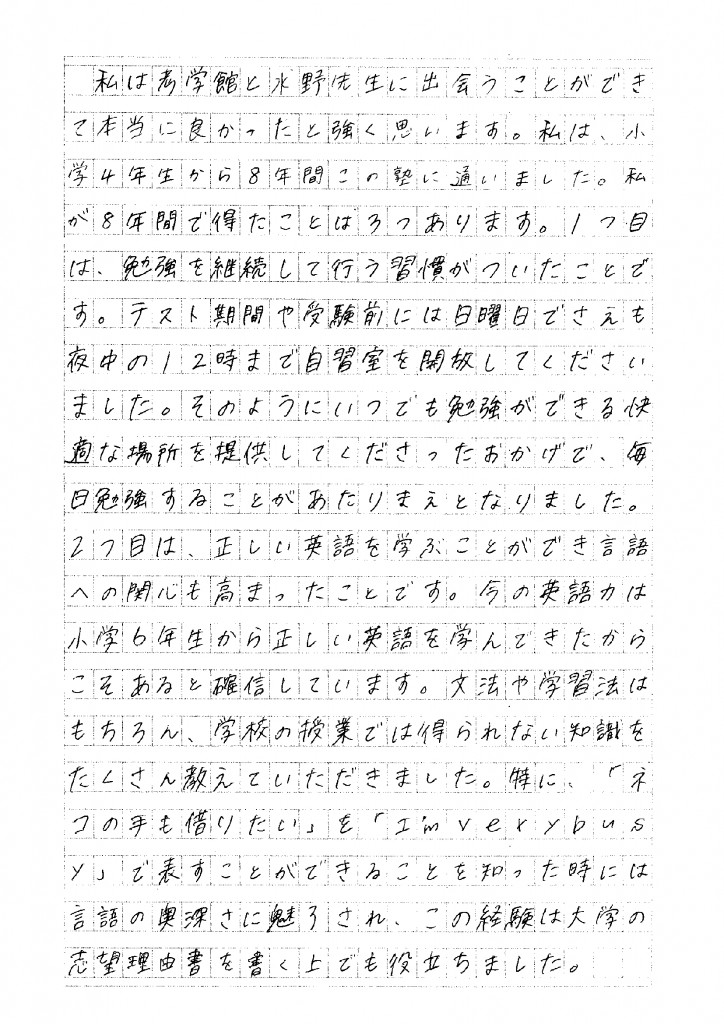 私は考学館と水野先生に出会うことができ
て本当に良かったと強く思います。私は、小
学4年生から8年間この塾に通いました。私
が8年間で得たことは3つあります。1つ目
は、勉強を継続して行う習慣がついたことで
す。テスト期間や受験前には日曜日でさえも
夜中の12時まで自習室を開放してください
ました。そのようにいつでも勉強ができる快
適な場所を提供してくださったおかげで、毎
日勉強することがあたりまえとなりました。
2つ目は、正しい英語を学ぶことができ言語
への関心も高まったことです。今の英語力は
小学6年生から正しい英語を学んできたから
こそあると確信しています。文法や学習法は
もちろん、学校の授業では得られない知識を
たくさん教えていただきました。特に、「ネ
コの手も借りたい」を「I'm very bus
y」で表すことができることを知った時には
言語の奥深さに魅了され、この経験は大学の
志望理由書を書く上でも役立ちました。